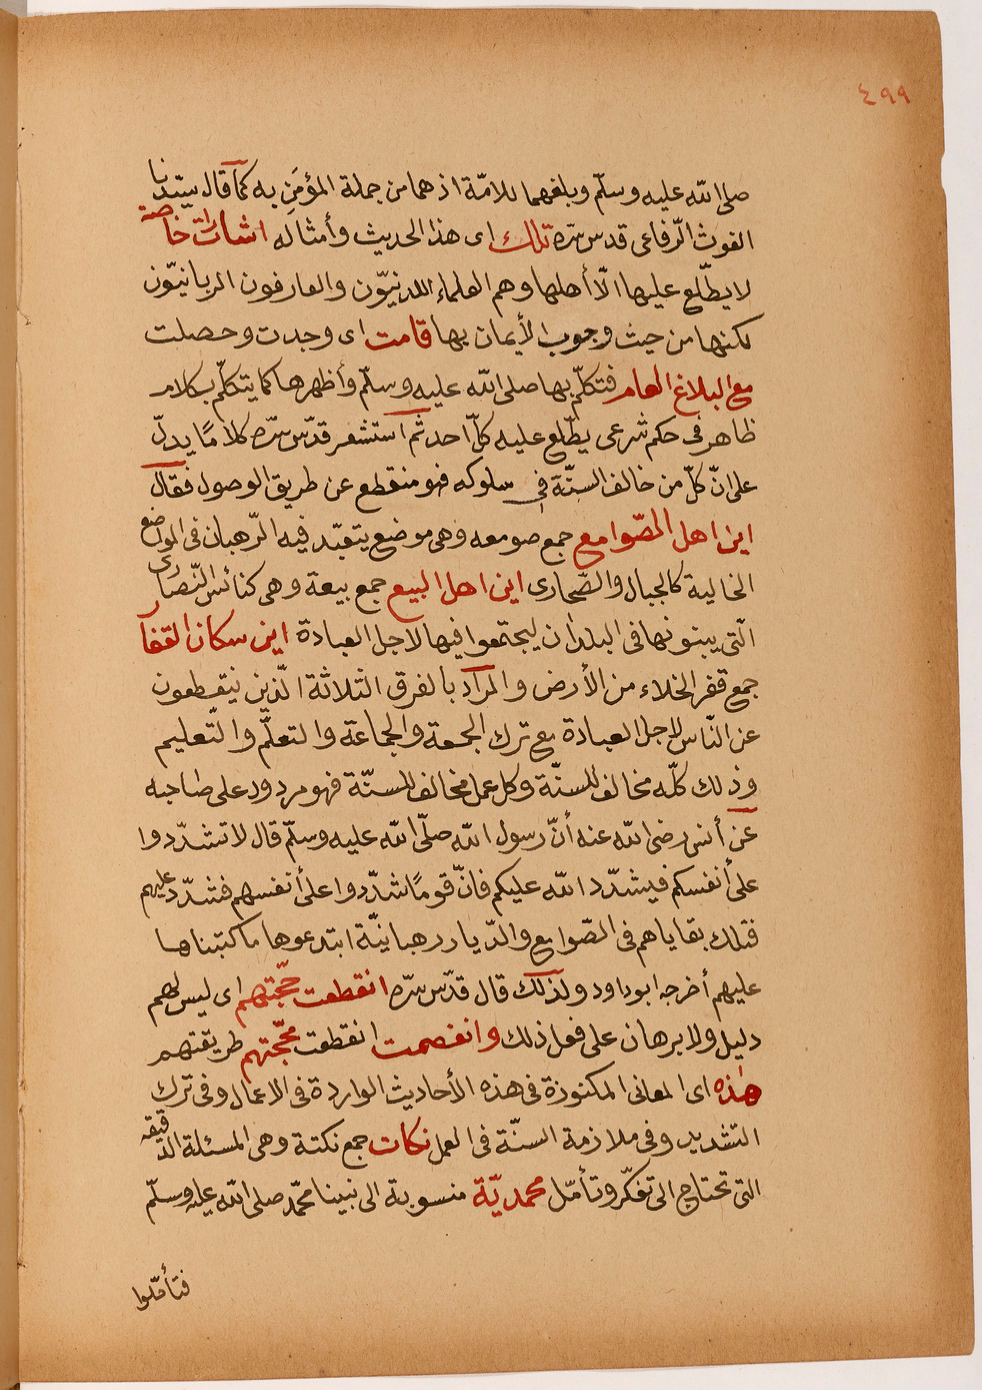 ٤٩٩
صلى الله عليه وسلّم وبلغهما للامّة اذ هما من جملة المؤمَنِ به كما قال سيّدنا
الغوث الرّفاعى قدس سرّه تلك اى هذا الحديث وأمثاله اشارات خاصة
لا يطّلع عليها الّا أهلها وهم العلماء اللدنيّون والعارفون الربانيّون
لكنها من حيث وجوب الأيمان بها قامت اى وجدت وحصلت
مع البلاغ العام فتكلّم بها صلى الله عليه وسلّم وأظهرها كما يتكلّم بكلام
ظاهر فى حكم شرعى يطّلع عليه كلّ احد ثم استشعر قدّس سرّه كلامًا يدلّ
على انّ كلّ من خالف السنّة فى سلوكه فهو منقطع عن طريق الوصول فقال
اين اهل الصّوامع جمع صومعه وهى موضع يتعبّد فيه الرّهبان فى المواضع
الخالية كالجبال والصّحارى اين اهل البيع جمع بيعة وهى كنائس النّصارى
الّتى يبنونها فى البلدان ليجتمعوا فيها لاجل العبادة اين سكان القفار
جمع قفر الخلاء من الأرض والمراد بالفرق الثلاثة الّذين ينقطعون
عن النّاس لاجل العبادة مع ترك الجمعة والجماعة والتعلّم والتّعليم
وذلك كلّه مخالف للسنّة وكل عمل مخالف للسنّة فهو مردود على صاحبه
عن أنس رضى الله عنه أنّ رسول الله صلّى الله عليه وسلّم قال لا تشدّدوا
على أنفسكم فيشدّد الله عليكم فانّ قومًا شدّدوا على أنفسهم فشدّد عليهم
فتلك بقاياهم فى الصّوامع والدّيار رهبانيّة ابتدعوها ما كتبناها
عليهم أخرجه ابو داود ولذلك قال قدّس سرّه انقطعت حجّتهم اى ليس لهم
دليل ولا برهان على فعل ذلك وانفصمت انقطعت محجّتهم طريقتهم
هذه اى المعانى المكنوزة فى هذه الأحاديث الواردة فى الاعمال وفى ترك
التشديد وفى ملازمة السنّة فى العمل نكات جمع نكتة وهى المسئلة الدقيقه
التى تحتاج الى تفكّر وتأمّل محمديّة منسوبة الى نبينا محمّد صلى الله عليه وسلّم
فتأمّلوا